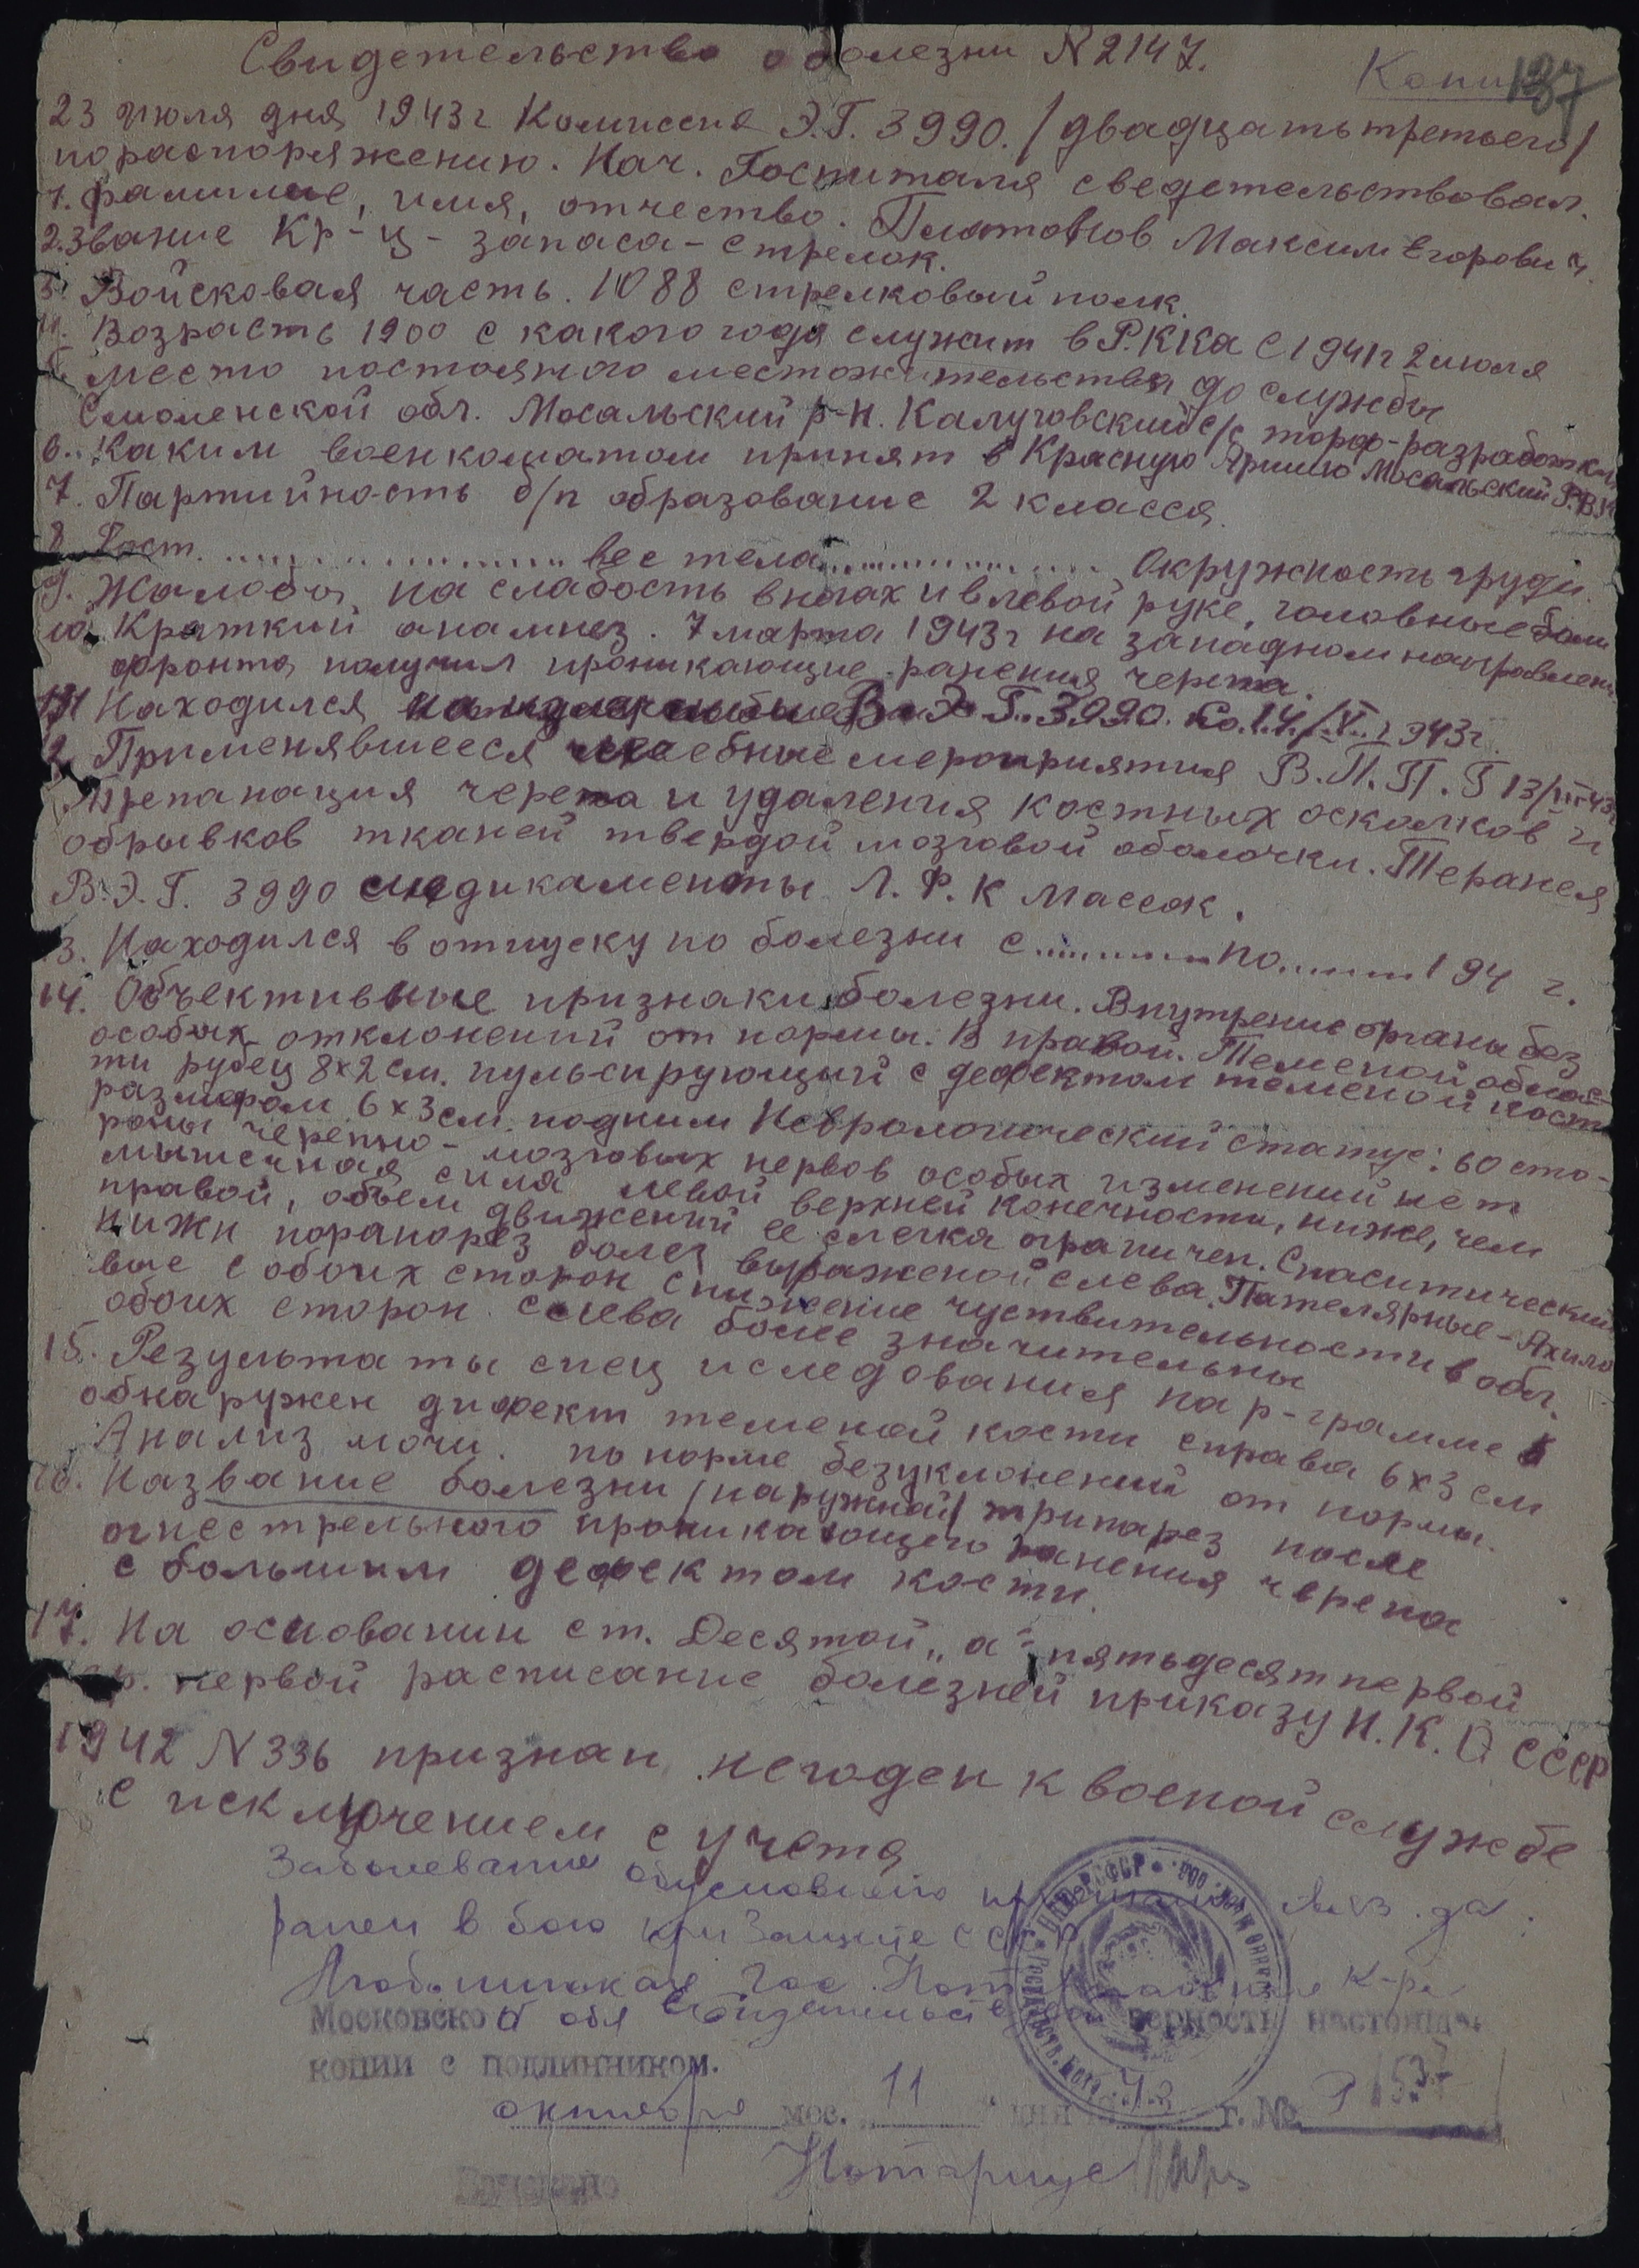 Свидетельство о болезни N 2147.
Копия
137
23 июля дня 1943 г Комиссия Э.Г. 3990. /двадцать третьего/
по распоряжению. Нач. Госпиталя сведетельствовал.
1. фамилие, имя, отчество. Платонов Максим Егорович
2. Звание Кр-ц - запаса - стрелок.
3. Войсковая часть. 1088 стрелковый полк.
4. Возрасть 1900 с какого года служит в Р.К.К.а С 1941 г 2 июля
5. Место постояного местожительства до службы
Смоленской обл. Мосальский р-н. Калуговский с/с торф-разработки
6. Каким военкоматом принят в Красную Армию Мосальский Р.В.К
7. Партийность б/п образование 2 класса.
8. Рост. ........ вес тела ........ Окружность груди.
9. Жалобы на слабость в ногах и в левой руке, головные боли
10. Краткий анамнез. 7 марта 1943 г на западном направлении
фронта получил проникающие ранения черепа.
11 Находился В Э.Г. 3990. Со. 14/V. 1943 г.
12 Применявшееся лечебные мероприятия В.П.П.Г 13/III-43 г
Трепанация черепа и удаления костных осколков и
обрывков тканей твердой мозговой оболочки. Терапея
В.Э.Г. 3990 медикаменты Л.Ф.К Массаж.
13. Находился в отпуску по болезни с ........ по ...... 194 г.
14. Объективные признаки болезни. Внутрение органы без
особых отклонений от нормы. В правой. Теменой облас-
ти рубец 8х2 см. пульсирующый с дефектом теменой кости
размером 6х3 см. под ним Неврологический статус: со сто-
роны черепно-мозговых нервов особых изменений нет
мышечная сила левой верхней конечности, ниже, чем
правой, объем движений ее слегка ограничен. Спаситический
нижн парапорез более выраженой слева. Пателярные-Ахило
вые с обоих сторон снижение чуствительности в обл.
обоих сторон слева более значительны
15. Результаты спец иследования на р-грамме
обнаружен дифект теменой кости справа 6х3 см
Анализ мочи. по норме без уклонений от нормы.
16. Название болезни /наружной/ трипарез после
огнестрельного проникающего ранения черепа
с большим дефектом кости.
17. На основании ст. Десятой „а“ пятьдесят первой
гр. первой расписание болезней приказу Н.К.О СССР
1942 N 336 признан негоден к военой службе
с исключением с учета
Заболевание
ранен в бою при Защите СССР
Гос. Нот. К-ра
Московской обл Свидетельствует верность настояще
копии с подлинником.
октября мес. 11 дня 1943 г. № Р 1537
Нотариус